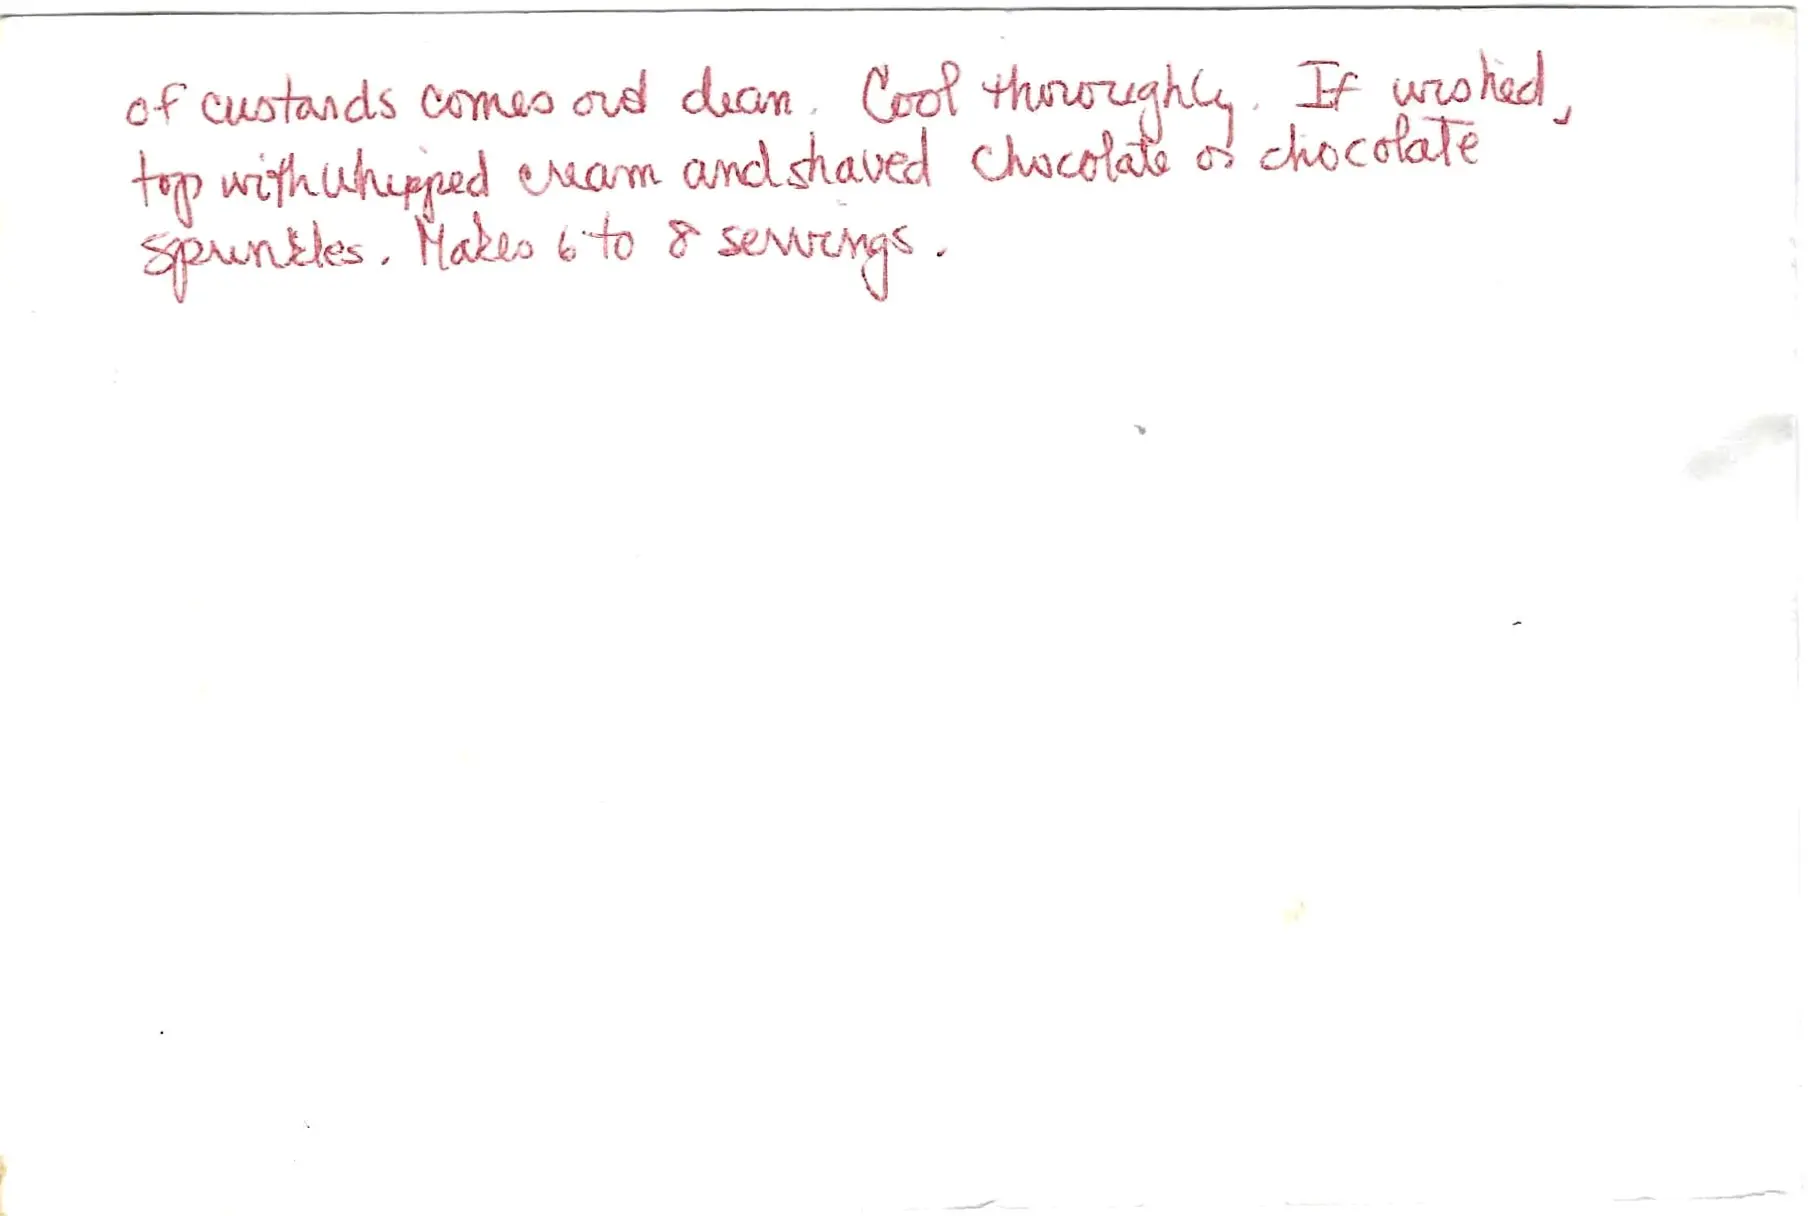 of custards comes out clean. Cool thoroughly. If wished,
top with whipped cream and shaved chocolate or chocolate
sprinkles. Makes 6 to 8 servings.